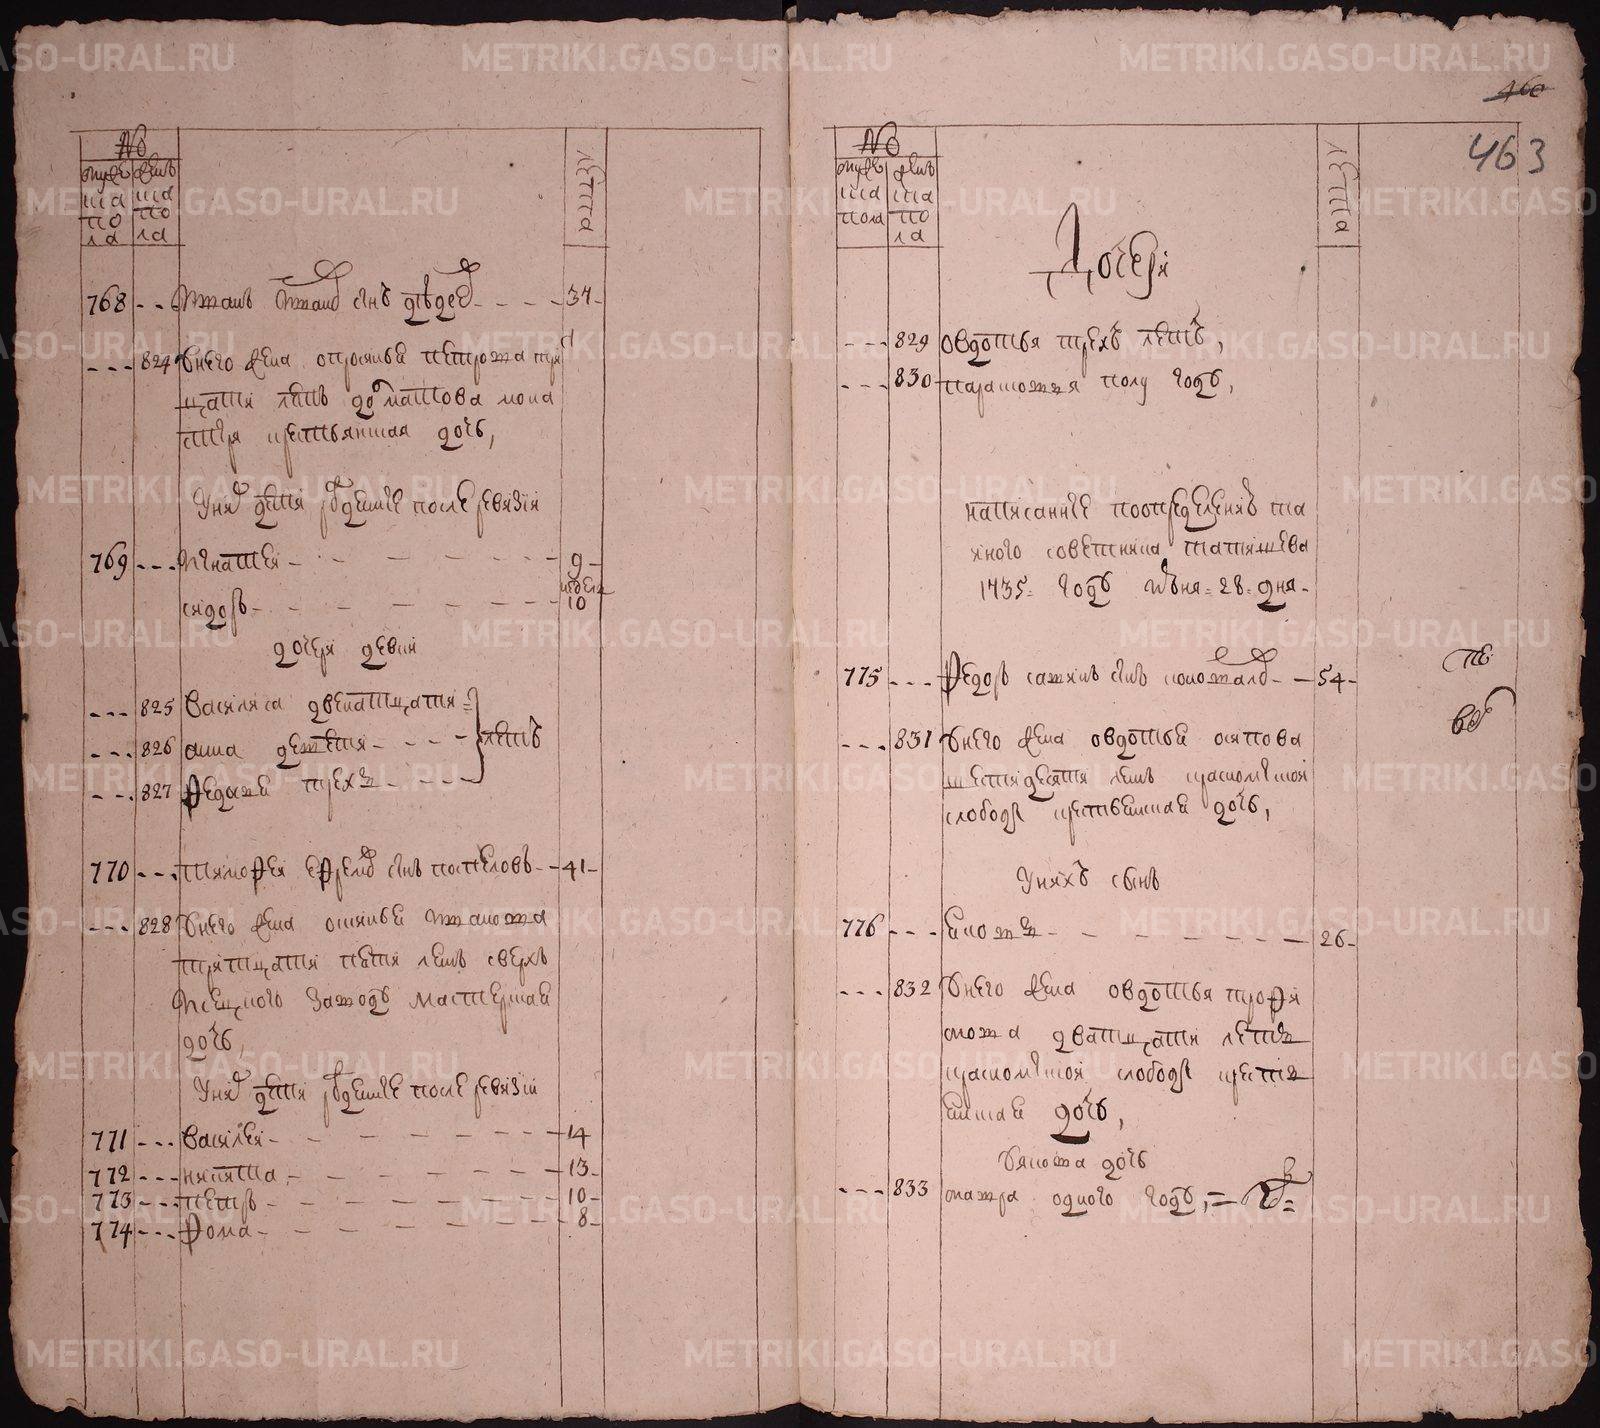 №
мужеска пола
женска пола
лета
768 - - - Иванъ Иванов снъ дедев - - - - 37 -
- - - 824 У него жена опросинья петрова три
цати летъ долматова мона
стыря крестьянская дочь,
У них дети рожденые после ревизии
769 - - - Игнатеи - - - - - - 9 -
недель
сидоръ - - - - - - - 10
дочери девки
- - - 825 василиса двенатцати =
- - - 826 анна девети - - - - летъ
- - - 827 Федосья трехъ - - - -
770 - - - тимофеи ефремов снъ поспеловъ - - 41 -
- - - 828 У него жена офимья иванова
тритцати пяти летъ сверхъ
Исецкого заводу мастерская
дочь,
У них дети рожденые после ревизии
771 - - - василеи - - - - - - 14
772 - - - никита, - - - - - - 13 -
773 - - - петръ - - - - - - 10 -
774 - - - Фома - - - - - - 8 -
460
463
№
мужеска пола
женска пола
лета
Дочери
- - - 829 овдотья трехъ летъ,
- - - 830 парасковья полу году,
написанные поопределению та
иного советника татищева
1735 = году июня = 28 = дня -
775 - - - Федоръ савинъ снъ коновалов - - 54 -
пе
- - - 831 У него жена овдотья осипова
шестидесяти летъ красномыской
слободы крестьянская дочь,
У нихъ сынъ
776 - - - яковъ - - - - - - - 26 -
- - - 832 У него жена овдотья трофи
мова дватцати летъ
красномыской слободы крестья
нская дочь,
У якова дочь
- - - 833 мавра одного году,